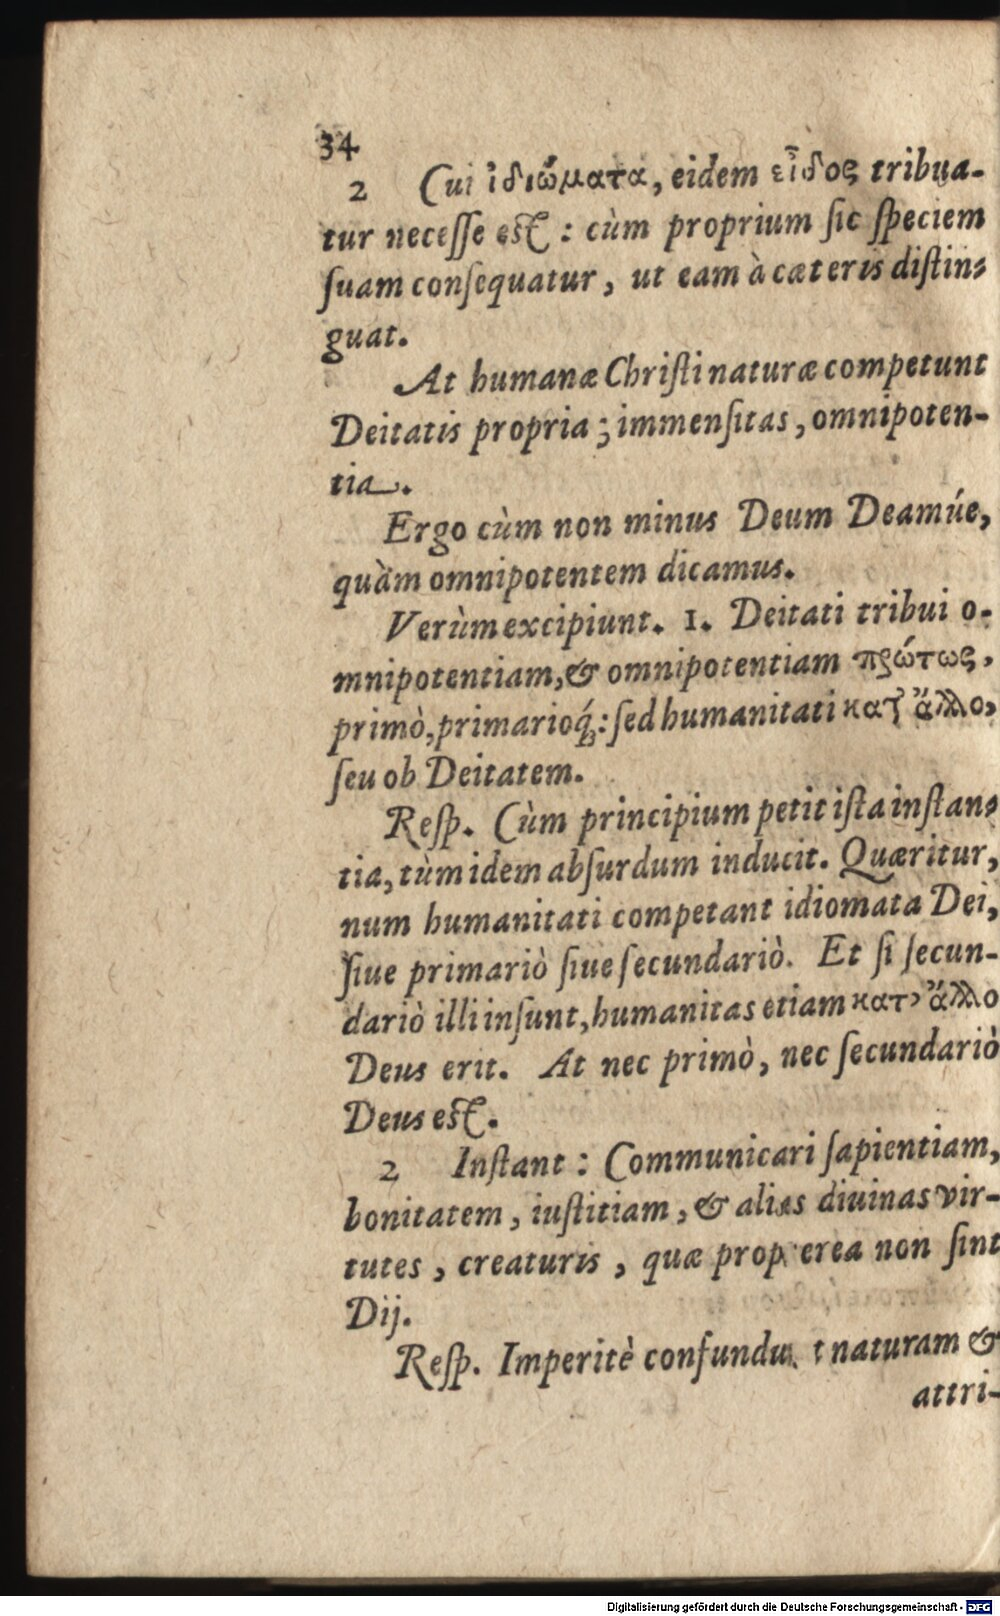 34
2 Cui ἰδιώματα, eidem εἶδος tribua-
tur necesse est : cùm proprium sic speciem
suam consequatur, ut eam à cæteris distin-
guat.
At humanæ Christi naturæ competunt
Deitatis propria ; immensitas, omnipoten-
tia.
Ergo cùm non minus Deum Deamúe,
quàm omnipotentem dicamus.
Verùm excipiunt. 1. Deitati tribui o-
mnipotentiam, & omnipotentiam πρώτως,
primò, primarioq́;: sed humanitati κατ' ἄλλο,
seu ob Deitatem.
Resp. Cùm principium petit ista instan-
tia, tùm idem absurdum inducit. Quæritur,
num humanitati competant idiomata Dei,
siue primariò siue secundariò. Et si secun-
dariò illi insunt, humanitas etiam κατ' ἄλλο
Deus erit. At nec primò, nec secundariò
Deus est.
2 Instant : Communicari sapientiam,
bonitatem, iustitiam, & alias diuinas vir-
tutes, creaturis, quæ propterea non sint
Dij.
Resp. Imperitè confundunt naturam &
attri-
Digitalisierung gefördert durch die Deutsche Forschungsgemeinschaft - DFG